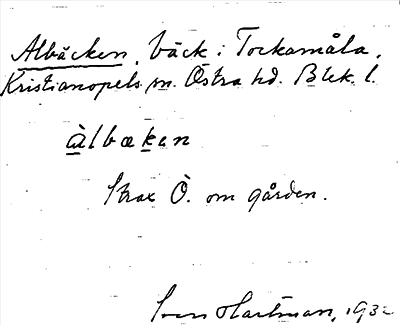 Albäcken, bäck i Tockamåla,
Kristianopels sn. Östra hd. Blek. l.
àlbæken
Strax Ö. om gården.
Sven Hartman, 1932